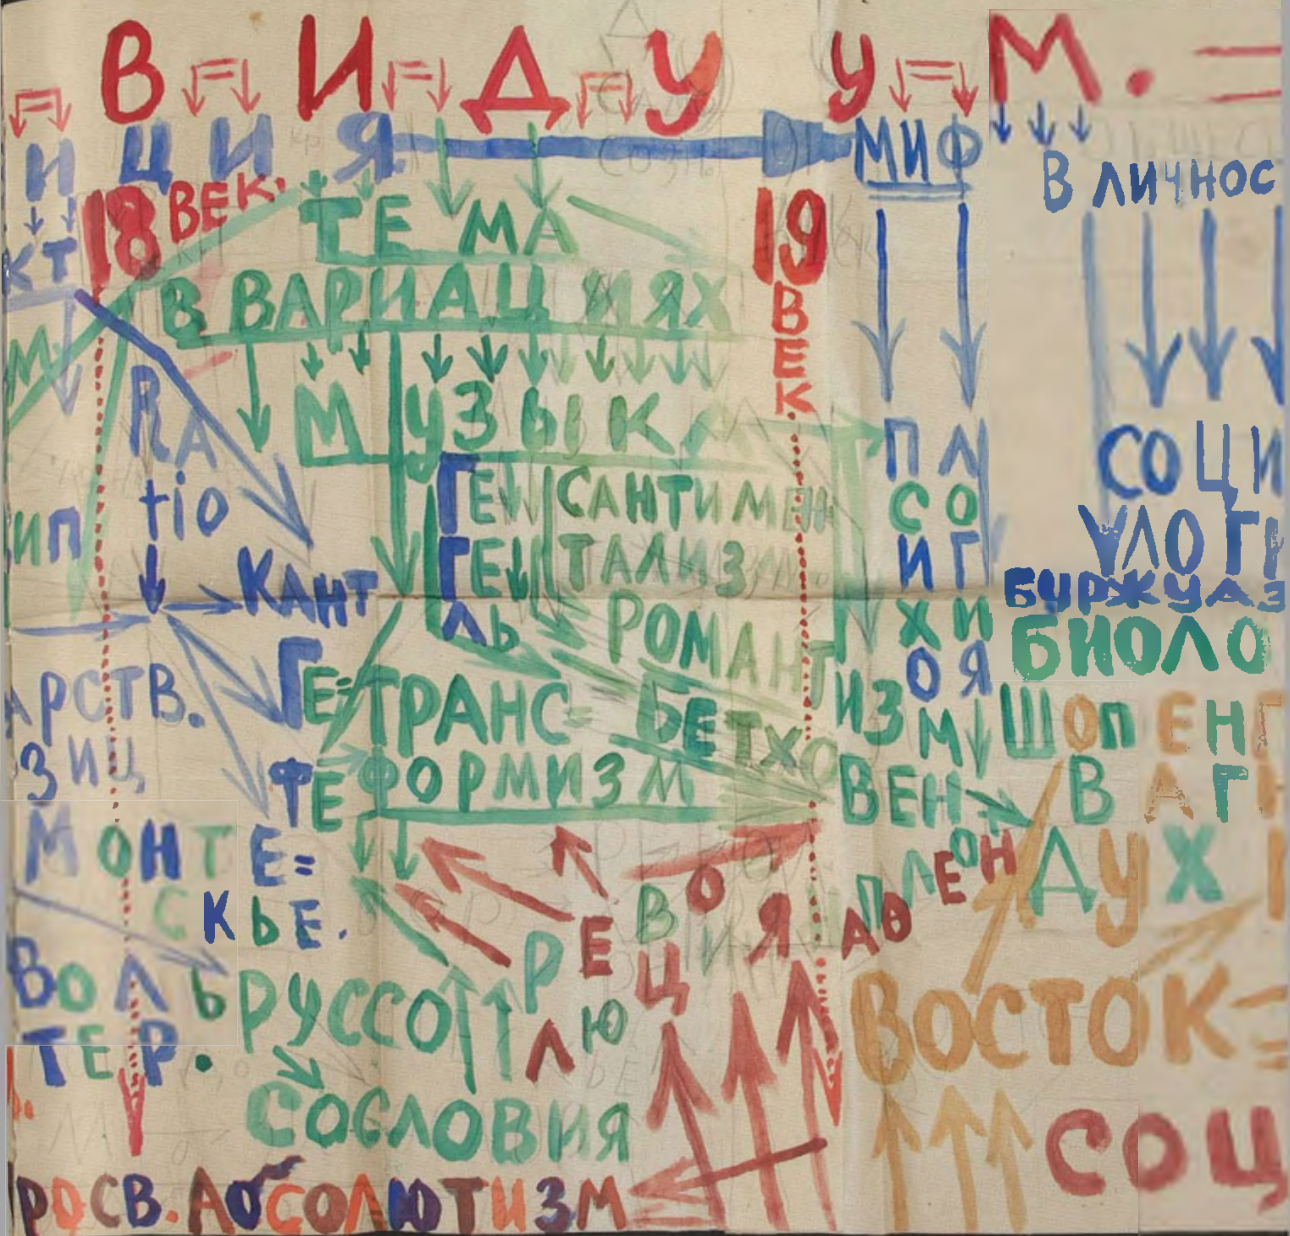 ВИДУУМ. =
ИЦИЯ
МИФ
В ЛИЧНОС
18 ВЕК.
19 ВЕК
КТ
ТЕМА
В ВАРИАЦИЯХ
МУЗЫКА
RAtio
ИП
КАНТ
ГЕГЕЛЬ
САНТИМЕНТАЛИЗМ
РОМАНТИЗМ
ПСИХОЛОГИЯ
СОЦИ
ОЛОГИ
БУРЖУАЗ
БИОЛО
АРСТВ.
ЗИЦ
ГЕ=ТЕ
ТРАНС=
ФОРМИЗМ
БЕТХОВЕН
ШОПЕНГ
ВАГН
ДУХ
МОНТЕ=
СКЬЕ.
НАПОЛЕОН
РЕВОЛЮЦИЯ
ВОЛЬ
ТЕР.
РУССО
ВОСТОК=
СОСЛОВИЯ
СОЦ
РОСВ. АБСОЛЮТИЗМ